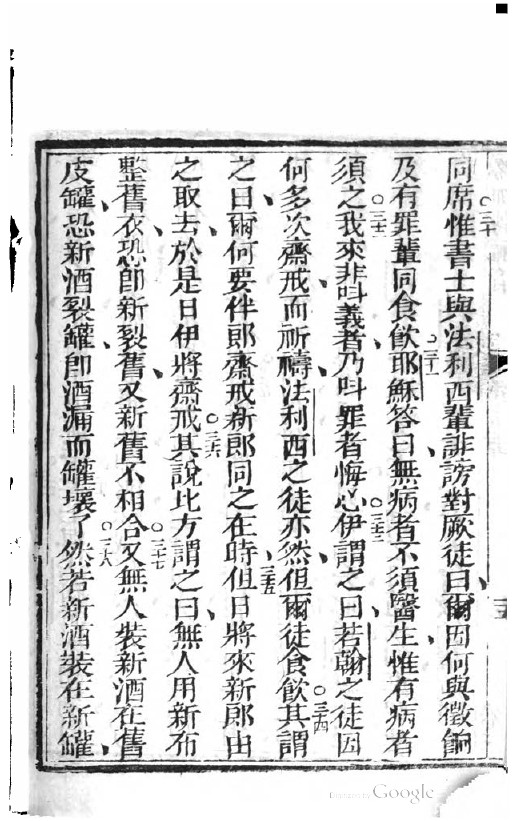 同席○三十惟書士與法利西輩誹謗對厥徒曰爾因何與徵餉
及有罪輩同食飲○三一耶穌答曰無病者不須醫生惟有病者
須之○三二我來非呌義者乃呌罪者悔心○三三伊謂之曰若翰之徒因
何多次齋戒而祈禱法利西之徒亦然但爾徒食飲○三四其謂
之曰爾何要伴郎齋戒新郎同之在時○三五但日將來新郎由
之取去於是日伊將齋戒○三六其說比方謂之曰無人用新布
整舊衣恐卽新裂舊又新舊不相合○三七又無人裝新酒在舊
皮罐恐新酒裂罐卽酒漏而罐壞了○三八然若新酒裝在新罐
Google